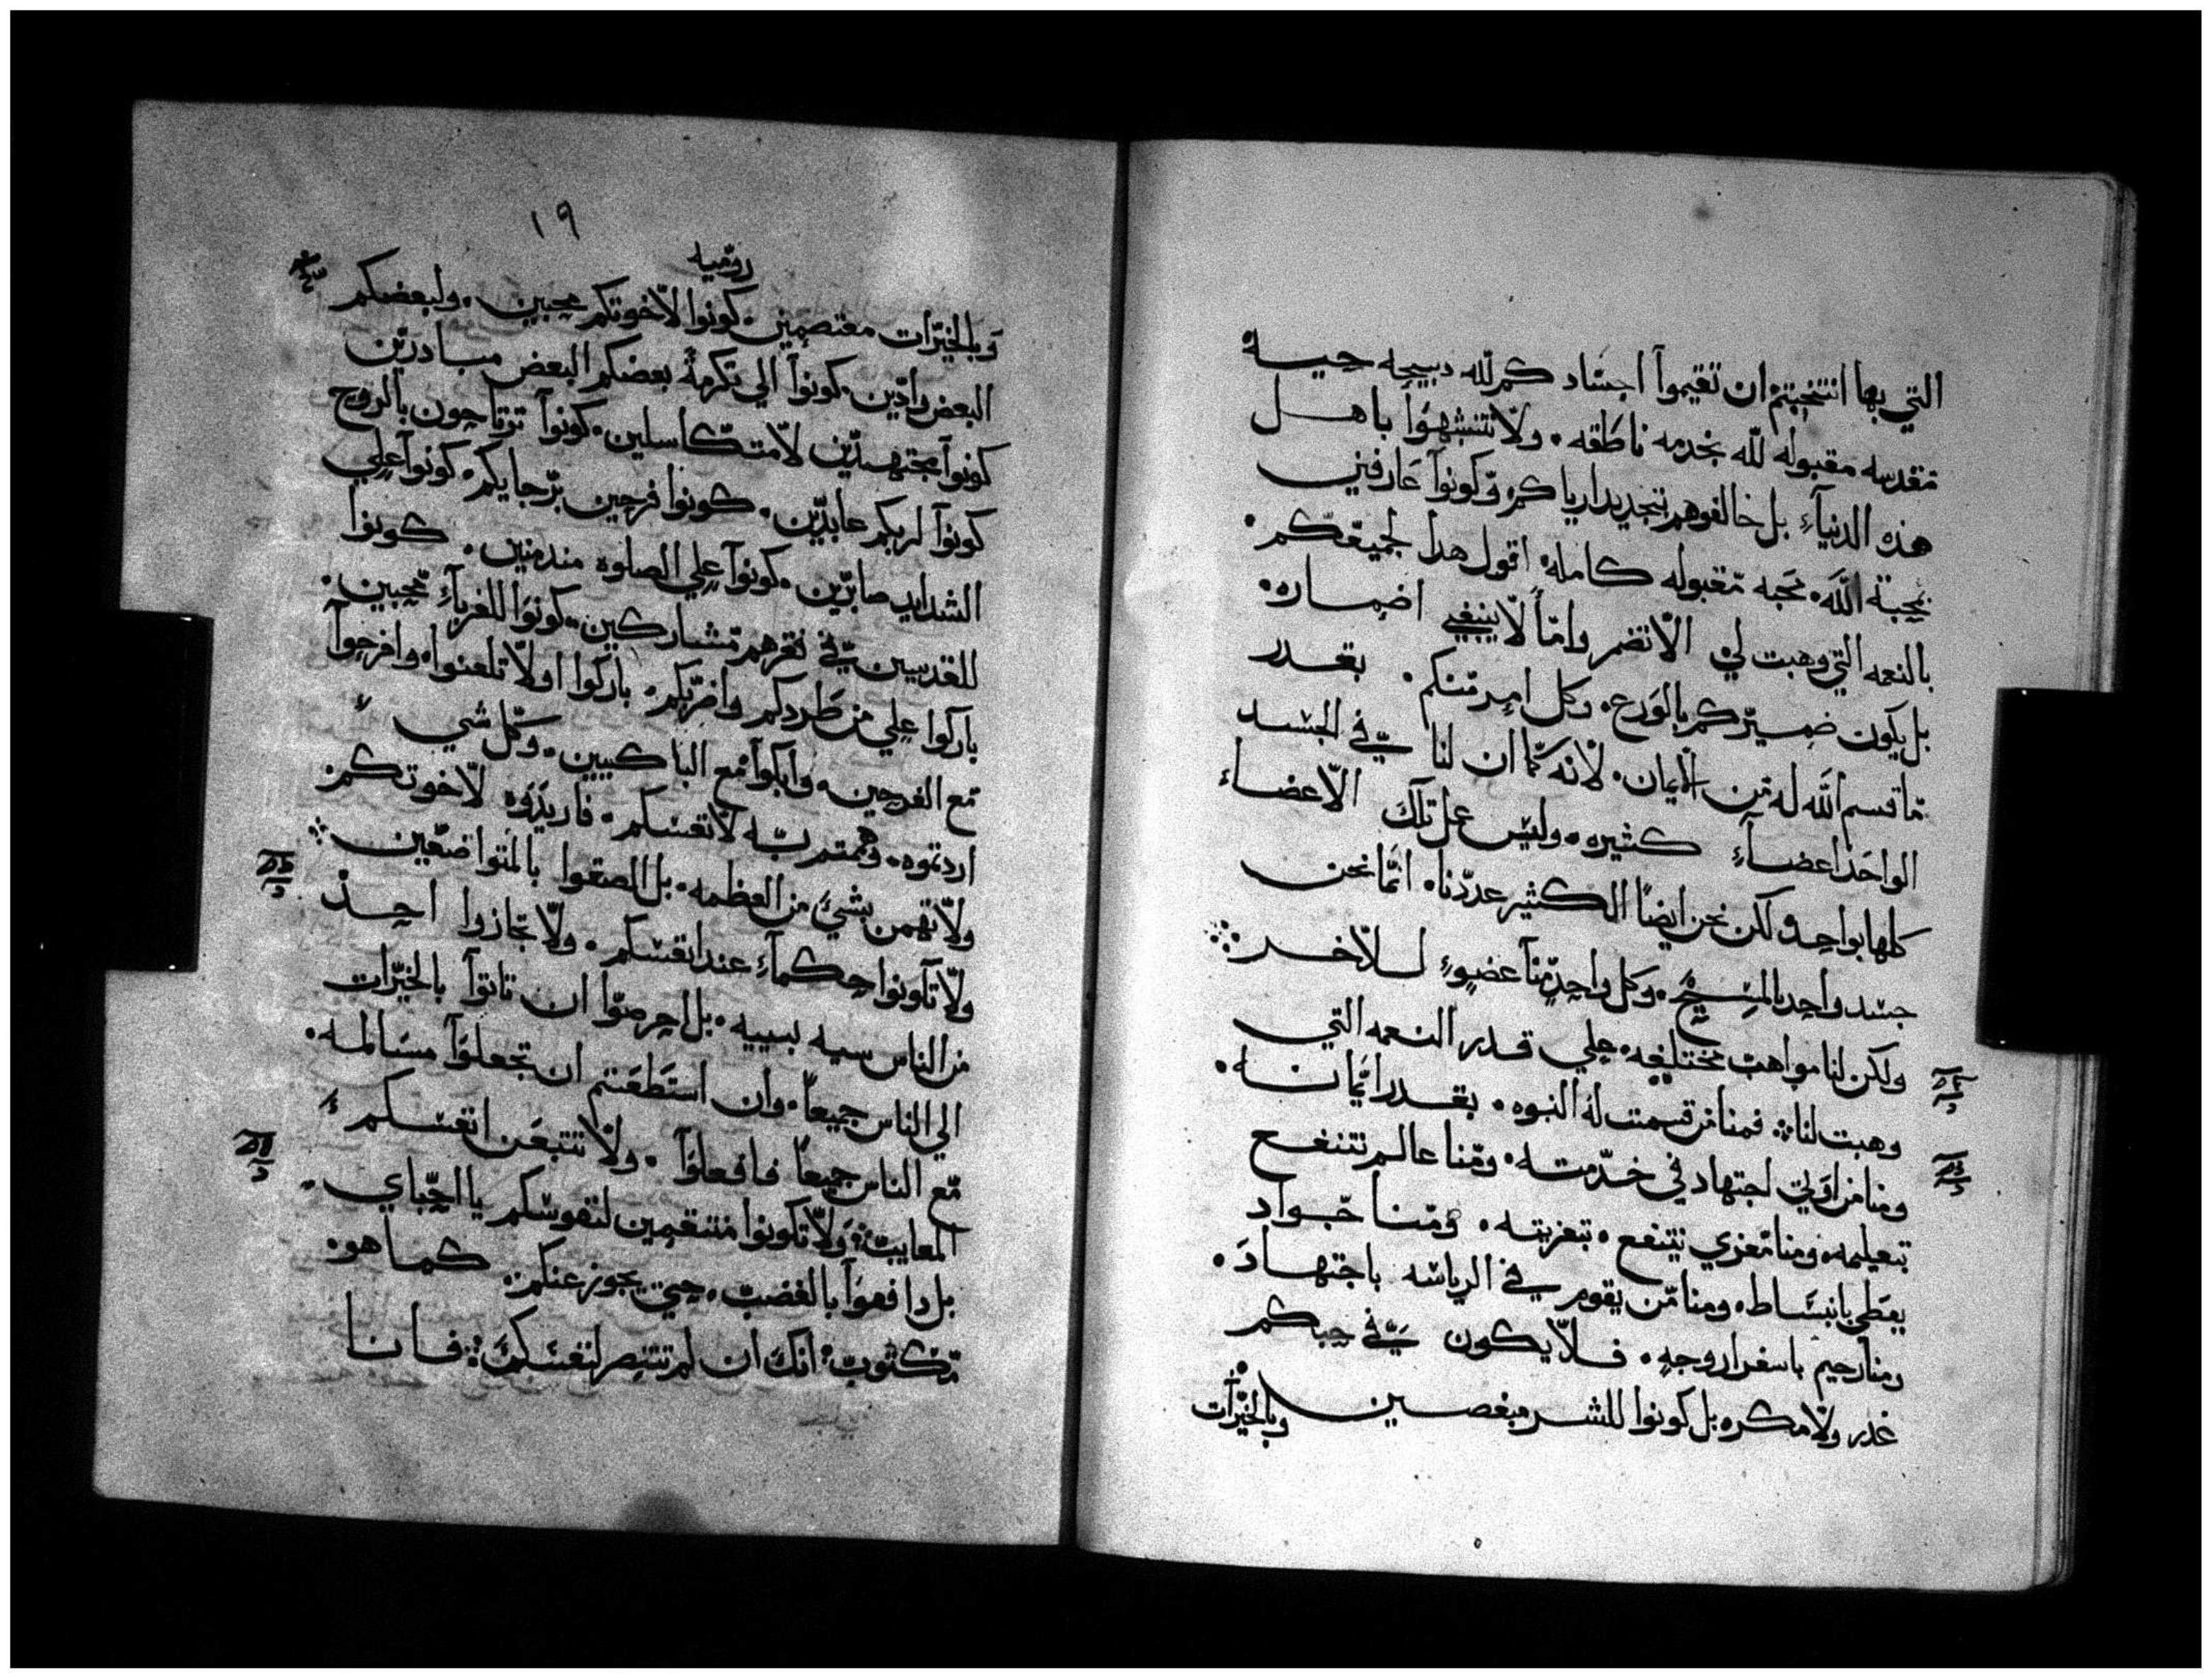 التي بها انتخبتم ان تقيموآ اجساد كم لله دبيحه حيه
مقدسه مقبوله لله بخدمه ناطقه. ولا تتشبهوا باهل
هذه الدنيآء بل خالفوهم بتجديد ارياكم وكونوآ عارفين
بمحبة الله. محبه مقبوله كامله. اقول هدا لجميعكم.
بالنعمه التي وهبت لي الا تضمر واما لا ينبغي اضماره.
بل يكون ضميركم بالورع. وكل امر منكم. بقدر
ما قسم الله له من الايمان. لانه كما ان لنا في الجسد
الواحد اعضآء كثيره. وليس عمل تلك الاعضاء
كلها بواحد ولكن نحن ايضاً الكثير عددنا. انما نحن
جسد واحد بالمسيح. وكل واحد منا عضوء للاخر
ولكن لنا مواهب مختلفه. علي قدر النعمه التي
وهبت لنا فمنا من قسمت له النبوه. بقدر ايمانه.
ومنا من اوتي اجتهاد في خدمته. ومنا عالم تتنفع
بتعليمه. ومنا معزي يتنفع. بتعزيته. ومنا جواد
يعطي بانبساط. ومنا من يقوم في الرياسه باجتهاد.
ومنا رحيم باسفرار وجه. فلا يكون في حبكم
غدر ولا مكره بل كونوا للشر مبغصين
وبالخيرات
١٩
روميه
وبالخيرات معتصمين. كونوا لاخوتكم محبين. ولبعضكم
البعض وادين. كونوآ الي تكرمة بعضكم البعض مبادرين
كونوآ مجتهدين لا متكاسلين. كونوآ ترتاحون بالروح
كونوآ لربكم عابدين. كونوا فرحين برجايكم. كونوآ علي
الشدايد صابرين. كونوآ علي الصلوه مندمنين. كونوا
للقديسين في فقرهم مشاركين. كونوا للغربآء محبين.
باركوا علي من طردكم واضربكم. باركوا اولا تلعنوا. وافرحوآ
مع الفرحين. وابكوآ مع الباكيين. وكل شي
اردتموه. وهمتم به لانفسكم. فاريدوه لاخوتكم
ولا تهمن بشي من العظمه. بل الصقوا بالمتواضعين
ولا تآونوا حكمآء عند انفسكم. ولا تجازوا احد
من الناس سيه بسييه. بل احرصوا ان تاتوآ بالخيرات
الي الناس جميعاً. وان استطعتم ان تجعلوآ مسالمه.
مع الناس جميعاً فافعلوآ. ولا تتبعن انفسكم
المعايب ولا تكونوا منتقمين لنفوسكم يا احباي.
بل دافعوآ بالغضب. حتي يجوز عنكم. كما هو.
مكتوب انك ان لم تنتصر لنفسك فانا